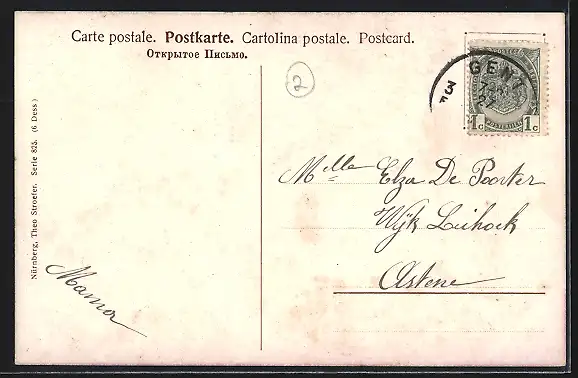 Carte postale. Postkarte. Cartolina postale. Postcard.
Открытое Письмо.
2
GENT
1c 1c
Nürnberg, Theo Stroefer. Serie 835. (6 Dess)
Mlle Elza De Poorter
Wijk Leihoek
Astene
Mama